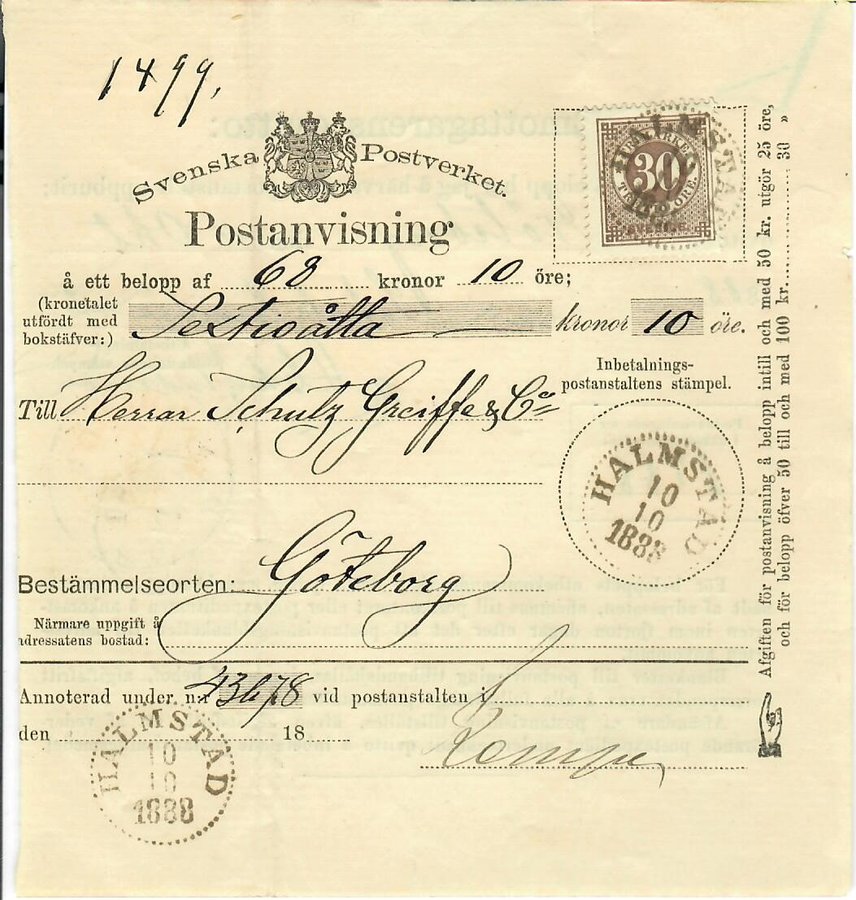 1499,
Svenska Postverket.
HALMSTAD
30
TRETTIO ÖRE
SVERIGE
Postanvisning
å ett belopp af 68 kronor 10 öre;
(kronetalet utfördt med bokstäfver:) Sextioåtta kronor 10 öre.
Till Herrar Schutz Greiffe & Co
Inbetalnings-
postanstaltens stämpel.
HALMSTAD
10
10
1888
Bestämmelseorten: Göteborg
Närmare uppgift å
adressatens bostad:
Annoterad under n:r 43678 vid postanstalten i
den 18
HALMSTAD
10
10
1888
Afgiften för postanvisning å belopp intill och med 50 kr. utgör 25 öre,
och för belopp öfver 50 till och med 100 kr. 30 »